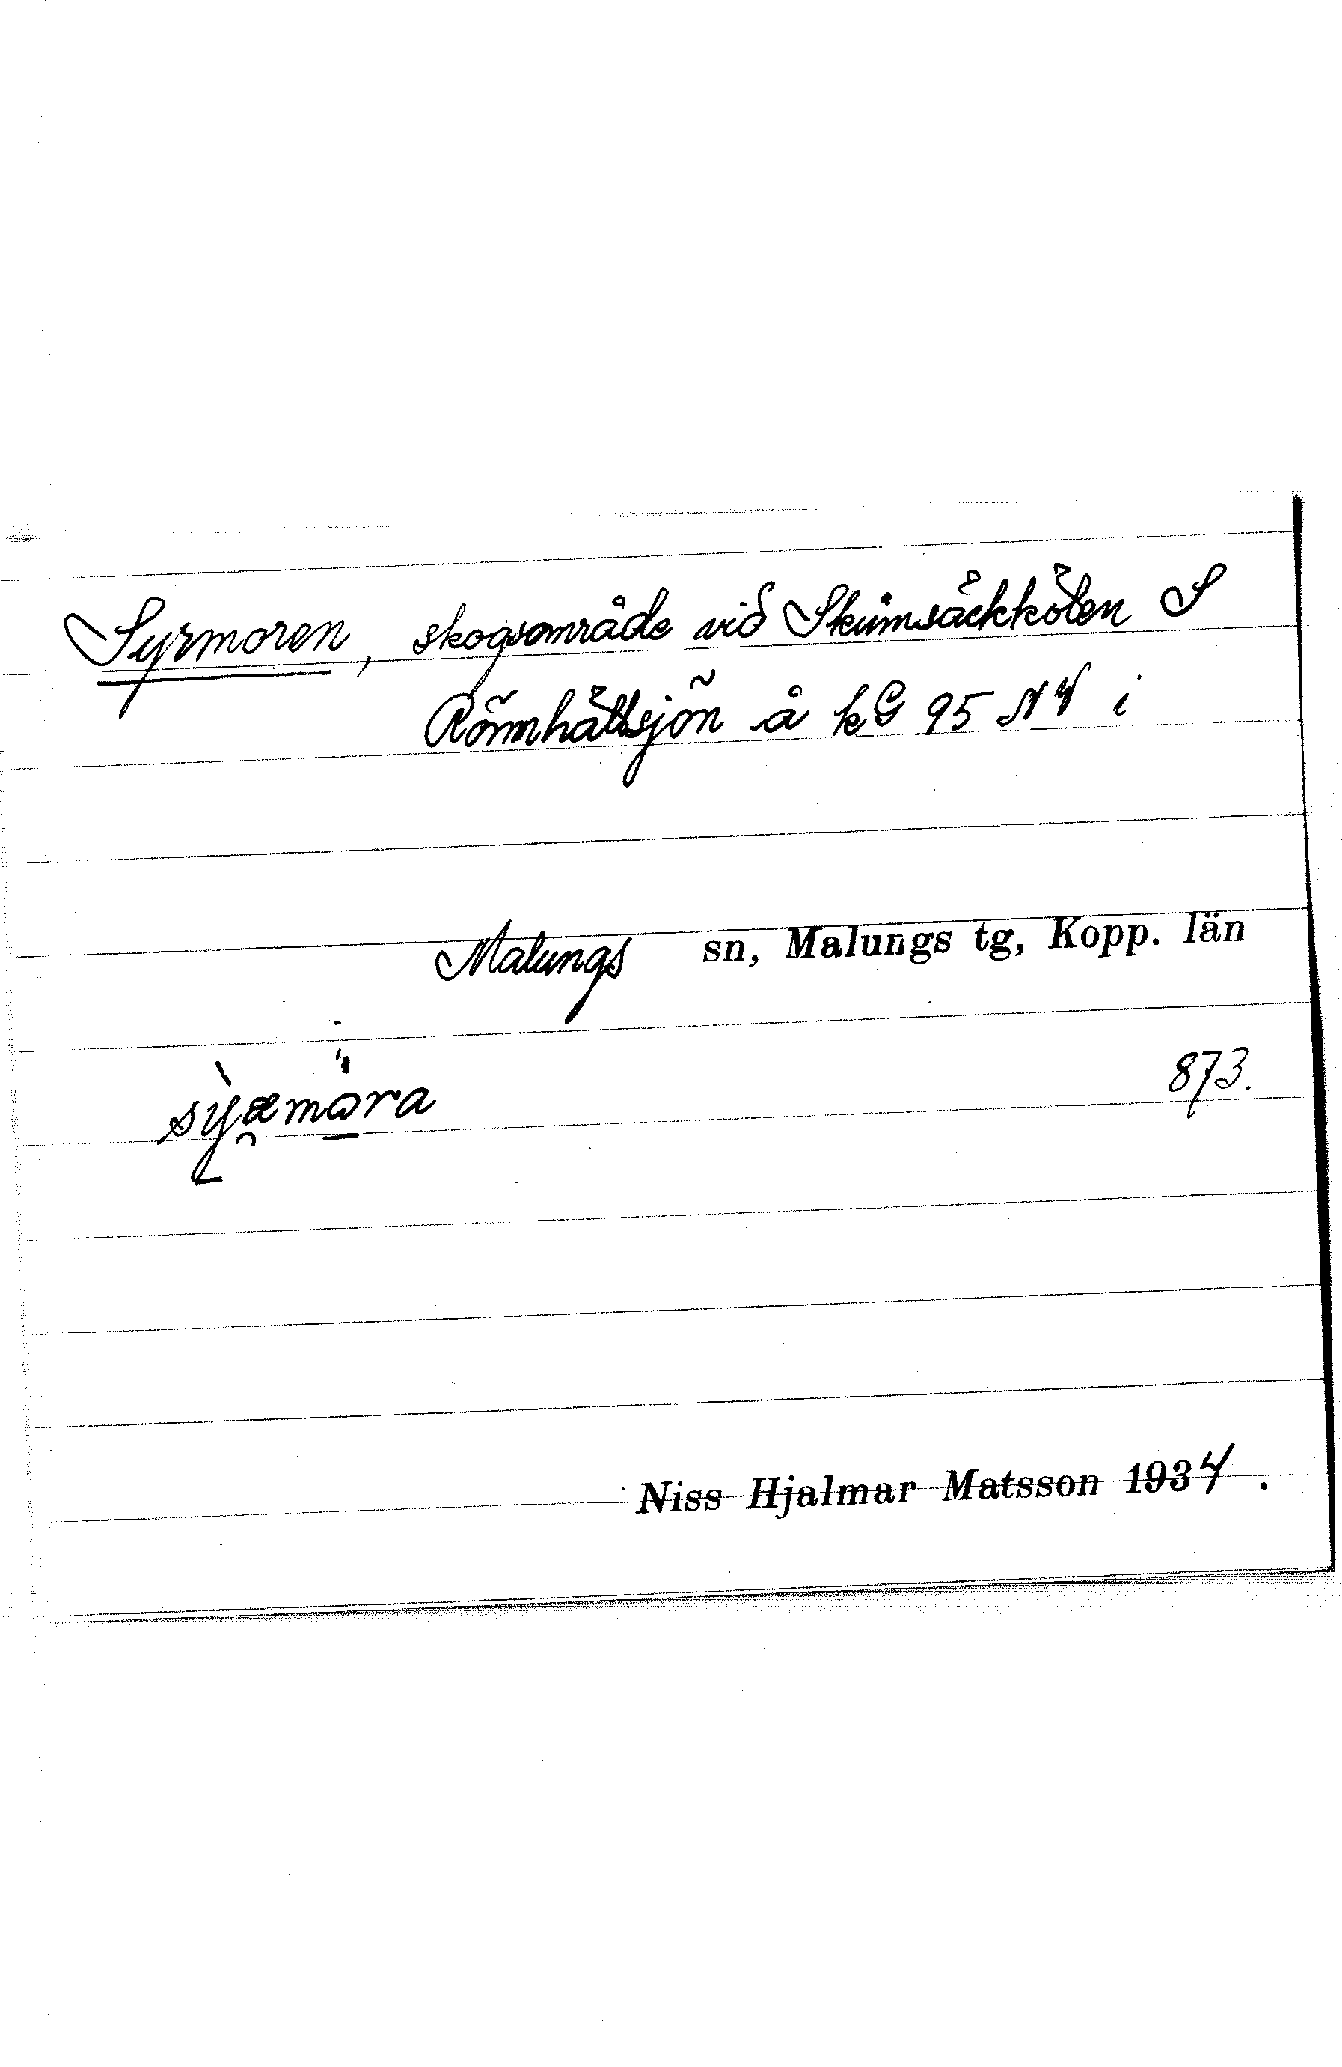 Syrmoren, skogsområde vid Skumsäckkölen S
Römhållsjön å kG 95 NV i
Malungs sn, Malungs tg, Kopp. län
873.
Niss Hjalmar Matsson 1934.